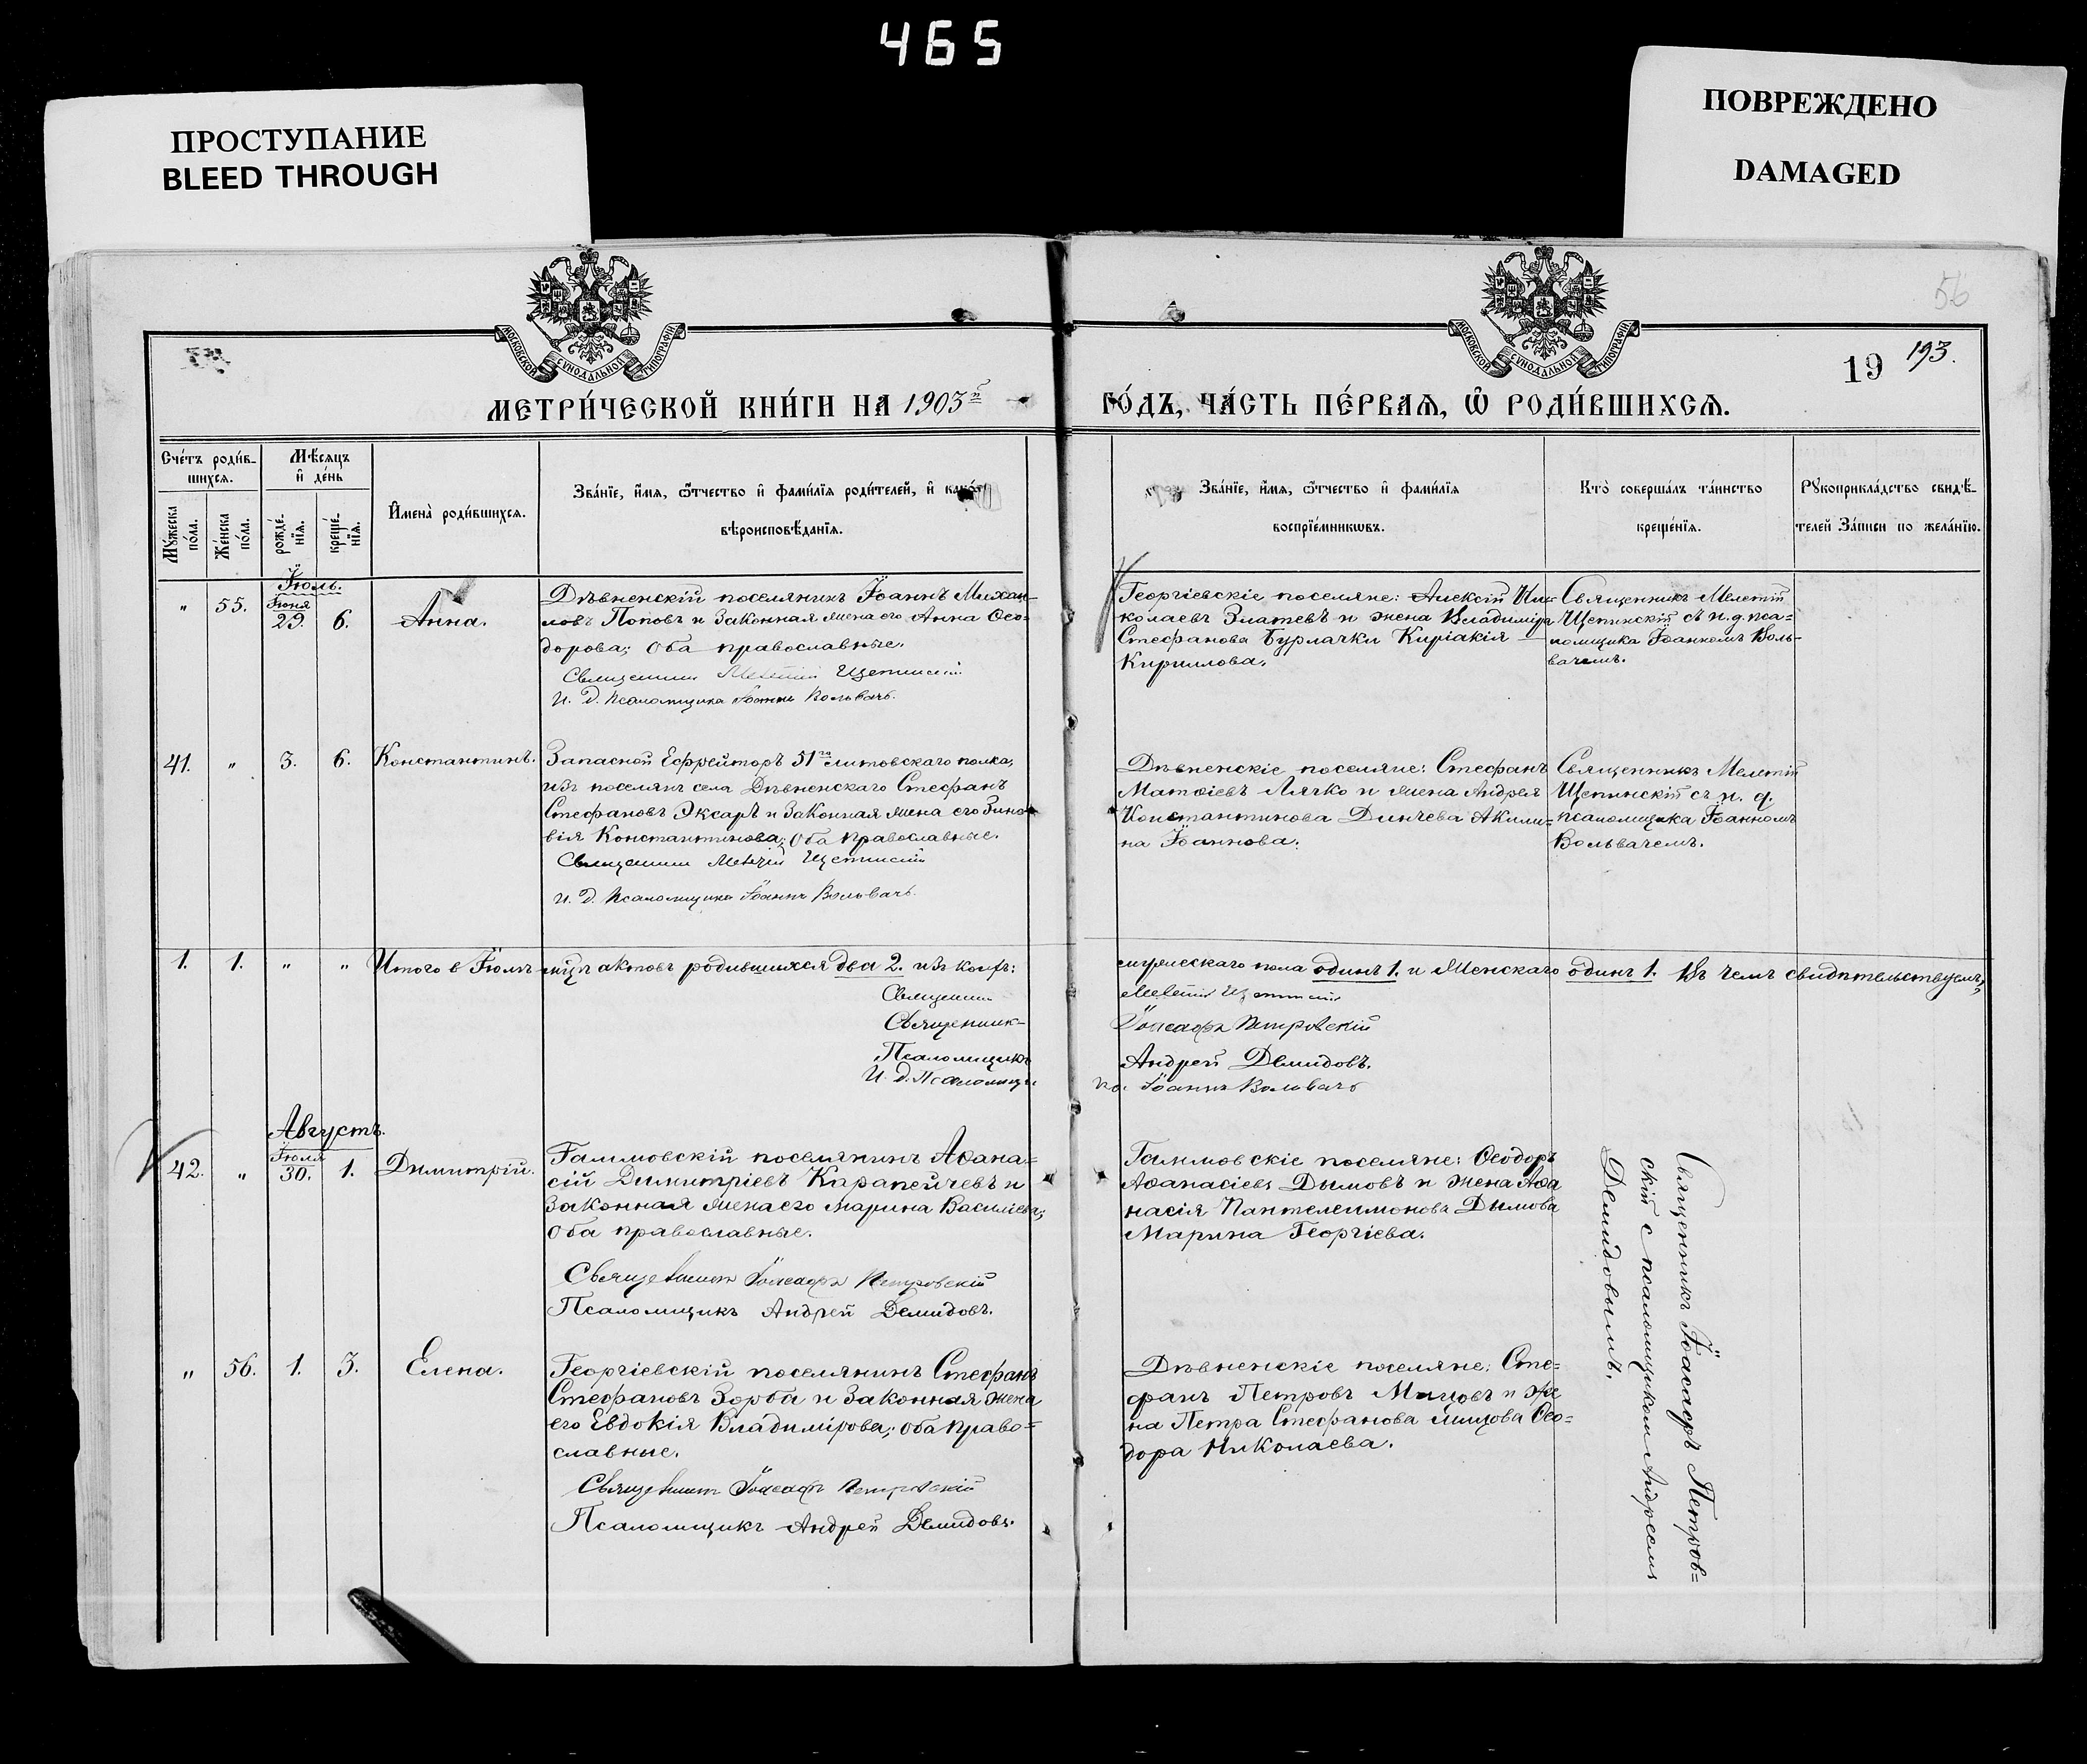 465
ПРОСТУПАНИЕ
BLEED THROUGH
ПОВРЕЖДЕНО
DAMAGED
56
МОСКОВСКОЙ СѴНОДАЛЬНОЙ ТИПОГРАФІИ
МОСКОВСКОЙ СѴНОДАЛЬНОЙ ТИПОГРАФІИ
19 193.
МЕТРИ́ЧЕСКОЙ КНИ́ГИ НА 1903й
ГО́ДЪ, ЧА́СТЬ ПЕ́РВАѦ, Ѽ РОДИ́ВШИХСѦ.
Сче́тъ роди́в-
шихсѧ.
Мꙋ́жеска по́ла.
Же́нска по́ла.
Мѣ́сѧцъ
и҆ де́нь
рожде́-нїѧ.
креще́-нїѧ.
И҆мена̀ роди́вшихсѧ.
Зва́нїе, и҆́мѧ, ѻ҆́тчество и҆ фами́лїѧ роди́телей, и҆ како́гѡ
вѣроисповѣ́данїѧ.
Зва́нїе, и҆́мѧ, ѻ҆́тчество и҆ фами́лїѧ
воспрїе́мникѡвъ.
Кто̀ соверша́лъ та́инство
креще́нїѧ.
Рꙋкоприкла́дство свидѣ́-
телей за́писи по жела́нїю.
Іюль.
" 55. Іюня 29. 6. Анна.
Дѣвненскій поселянинъ Іоаннъ Михаи-
ловъ Поповъ и законная жена его Анна Ѳео-
дорова; оба православные.
Священникъ Мелетій Щепинскій
И. д. Псаломщика Іоаннъ Вольвачъ.
Георгіевскіе поселяне: Алексій Ни-
колаевъ Златевъ и жена Владиміра
Стефанова Бурлачки Киріакія
Кириллова.
Священникъ Мелетій
Щепинскій съ и. д. пса-
ломщика Іоанномъ Воль-
вачемъ.
41. " 3. 6. Константинъ.
Запасной Ефрейторъ 51го литовскаго полка,
изъ поселянъ села Дѣвненскаго Стефанъ
Стефановъ Эксаръ и законная жена его Зино-
вія Константинова; оба православные.
Священникъ Мелетій Щепинскій
И. д. Псаломщика Іоаннъ Вольвачъ.
Дѣвненскіе поселяне: Стефанъ
Матѳіевъ Лячко и жена Андрея
Константинова Динчева Акили-
на Іоаннова.
Священникъ Мелетій
Щепинскій съ и. д.
псаломщика Іоанномъ
Вольвачемъ.
1. 1. " " Итого в Іюлѣ мцѣ актовъ родившихся два 2. изъ коихъ:
мужескаго пола одинъ 1. и женскаго одинъ 1. Въ чемъ свидѣтельствуемъ,
Священникъ Мелетій Щепинскій
Священникъ Іоасафъ Петровскій
Псаломщикъ Андрей Демидовъ.
И. д. Псаломщика Іоаннъ Вольвачъ
Августъ.
42. " Іюля 30. 1. Димитрій.
Галимовскій поселянинъ Аѳана-
сій Димитріевъ Карапейчевъ и
законная жена его Марина Василіева;
оба православные.
Священникъ Іоасафъ Петровскій
Псаломщикъ Андрей Демидовъ.
Галимовскіе поселяне: Ѳеодоръ
Аѳанасіевъ Дымовъ и жена Аѳа
насія Пантелеимонова Дымова
Марина Георгіева.
Священникъ Іоасафъ Петров-
скій с псаломщикомъ Андреемъ
Демидовымъ.
" 56. 1. 3. Елена.
Георгіевскій поселянинъ Стефанъ
Стефановъ Зорба и законная жена
его Евдокія Владимірова; оба право-
славные.
Священникъ Іоасафъ Петровскій
Псаломщикъ Андрей Демидовъ.
Дѣвненскіе поселяне: Сте-
фанъ Петровъ Мицовъ и же
на Петра Стефанова Мицова Ѳео-
дора Николаева.